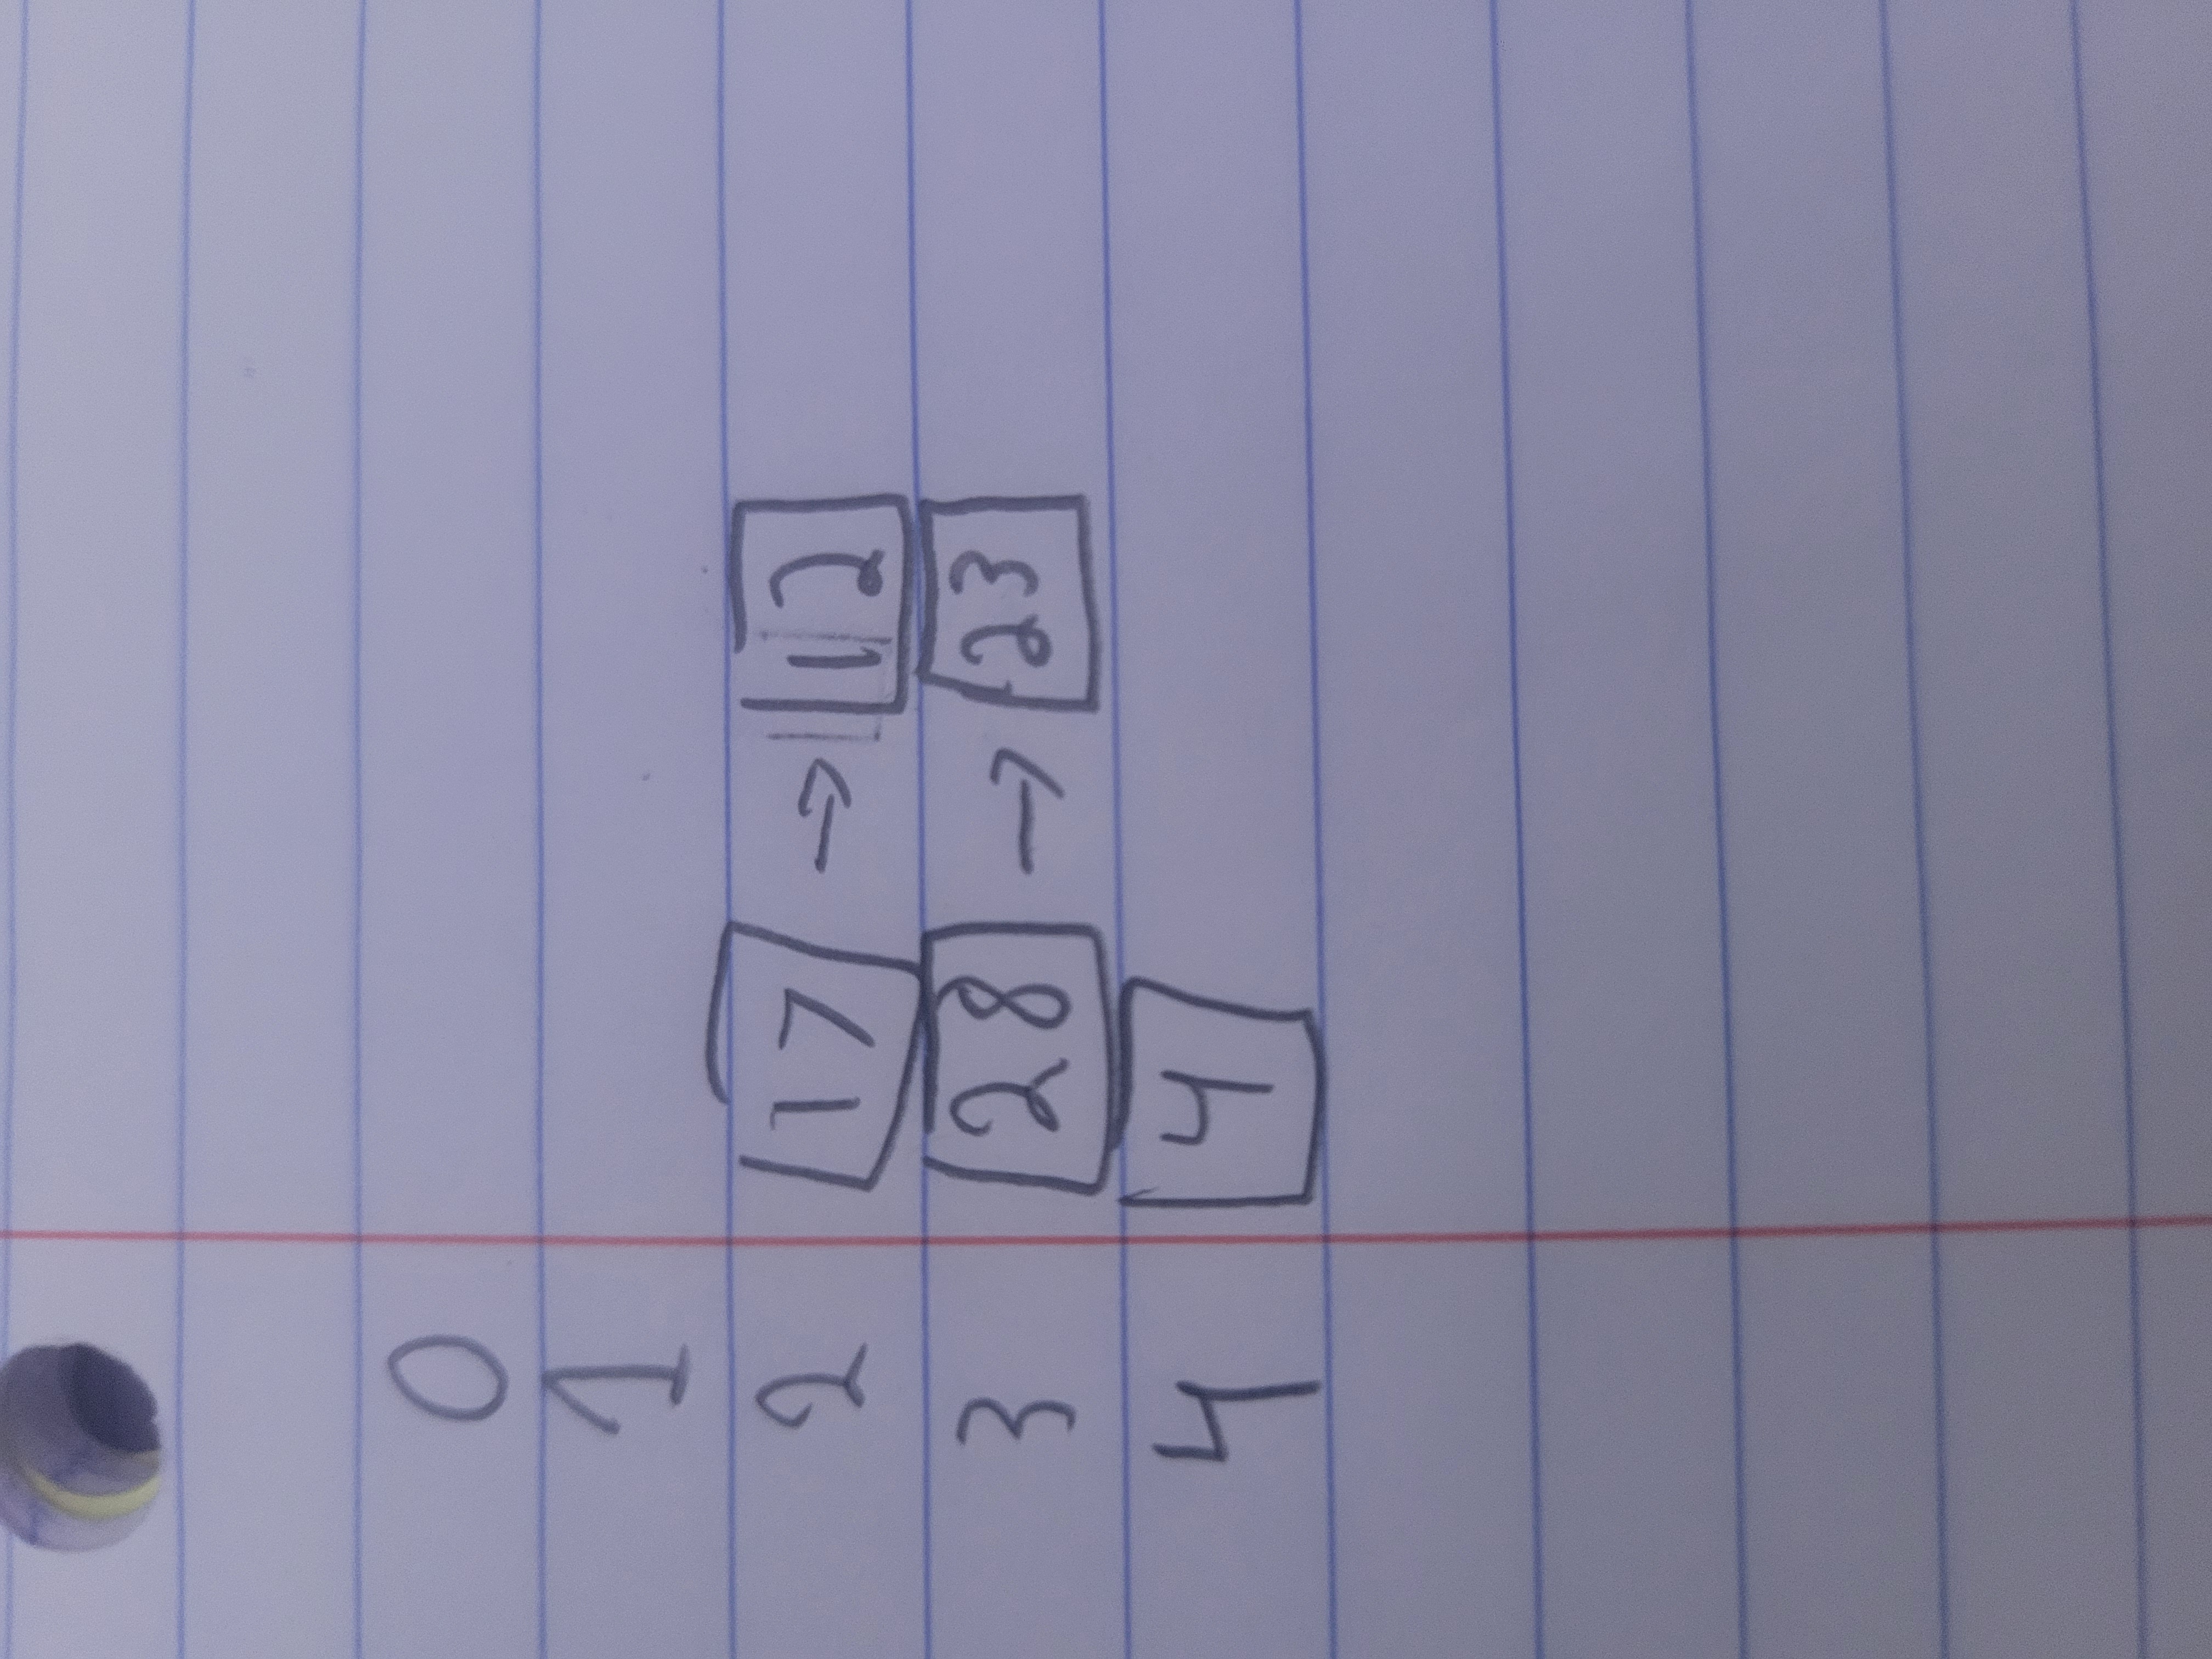 0
1
2 17 → 12
3 28 → 23
4 4